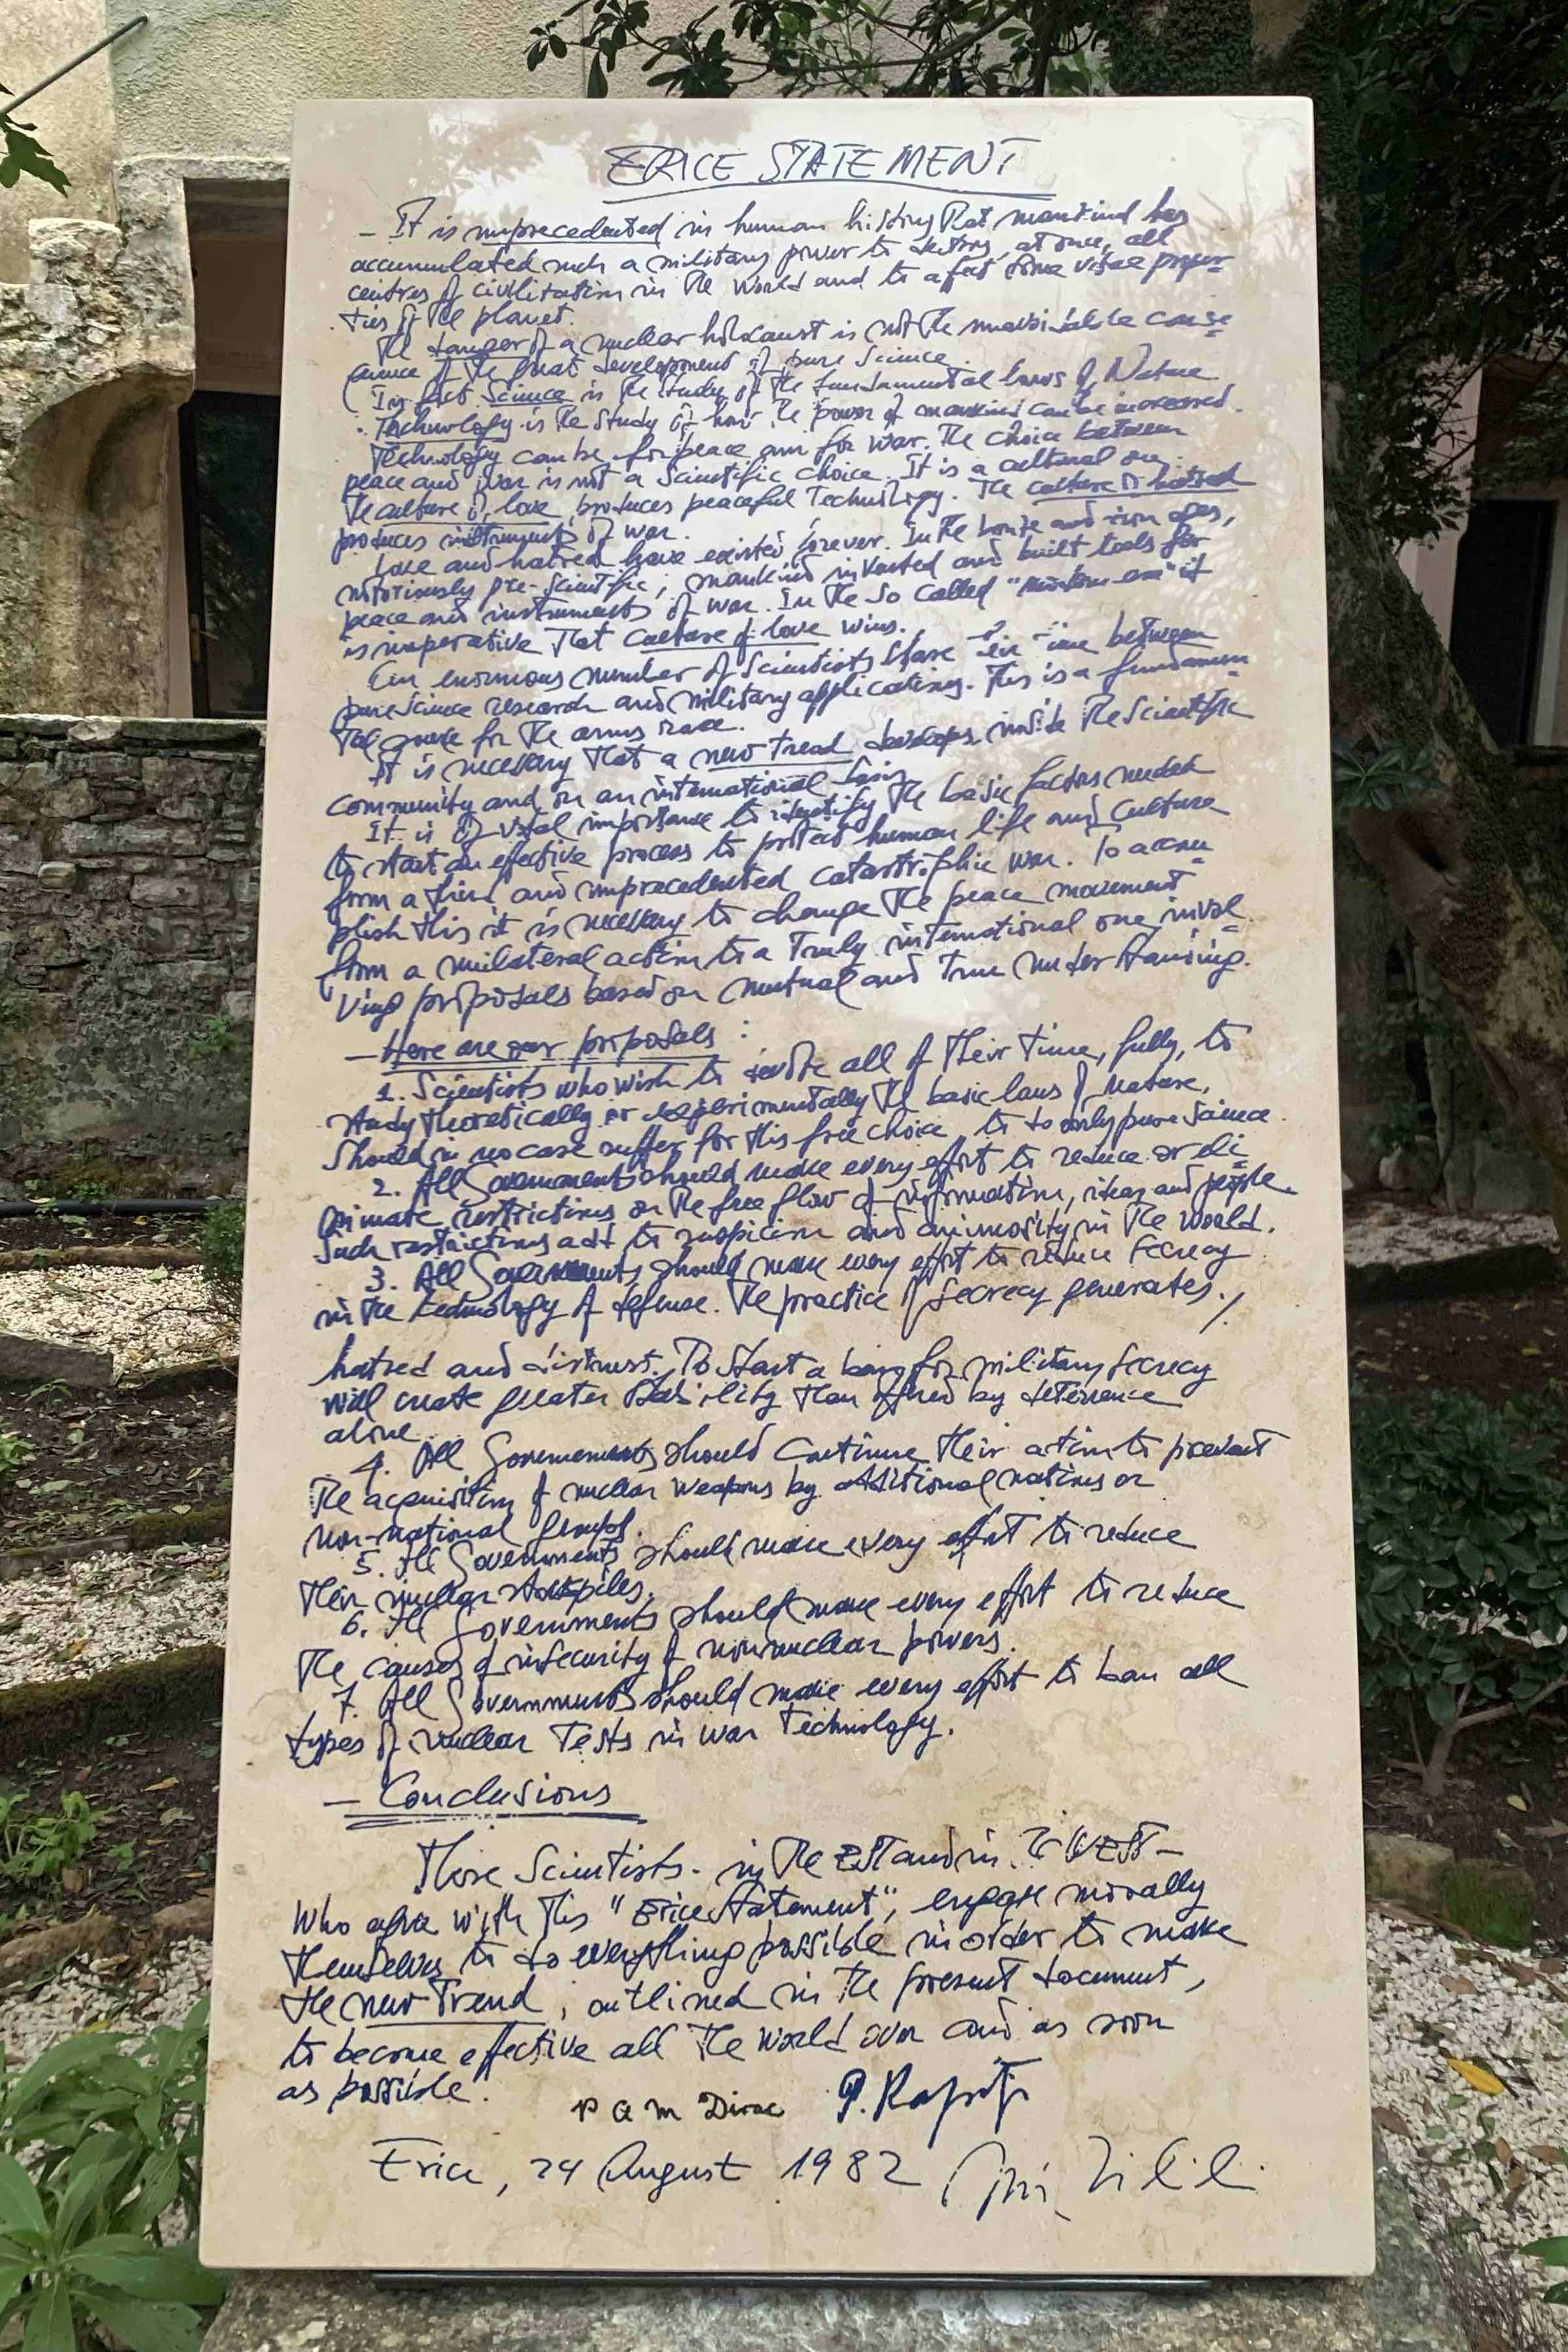 ERICE STATEMENT
- It is unprecedented in human history that mankind has
accumulated such a military power to destroy, at once, all
centres of civilization in the world and to affect some vital proper-
ties of the planet.
The danger of a nuclear holocaust is not the unavoidable conse-
quence of the great development of pure Science.
In fact Science is the study of the fundamental laws of Nature
Technology is the study of how the power of mankind can be increased.
Technology can be for peace and for war. The choice between
peace and war is not a Scientific choice. It is a cultural one
The culture of love produces peaceful Technology. The culture of hatred
produces instruments of war.
Love and hatred have existed forever. In the bronze and iron ages,
notoriously pre-Scientific, mankind invented and built tools for
peace and instruments of war. In the so called "modern era" it
is imperative that culture of love wins.
An enormous number of Scientists share their time between
pure Science research and military applications. This is a fundamen-
tal source for the arms race.
It is necessary that a new trend develops, inside the Scientific
community and on an international basis
It is of vital importance to identify the basic factors needed
to start an effective process to protect human life and culture
from a third and unprecedented catastrophic war. To accom-
plish this it is necessary to change the peace movement
from a unilateral action to a truly international one invol-
ving proposals based on mutual and true understanding.
- Here are our proposals :
1. Scientists who wish to devote all of their time, fully, to
study theoretically or experimentally the basic laws of Nature,
should in no case suffer for this free choice, to do only pure Science.
2. All Governments should make every effort to reduce or eli-
minate restrictions on the free flow of information, ideas and people.
Such restrictions add to suspicion and animosity in the world.
3. All Governments should make every effort to reduce secrecy
in the technology of defense. The practice of secrecy generates ./.
hatred and distrust. To start a ban for military secrecy
will create greater stability than offered by deterrence
alone.
4. All Governments should continue their action to prevent
the acquisition of nuclear weapons by additional nations or
non-national groups.
5. All Governments should make every effort to reduce
their nuclear stockpiles.
6. All Governments should make every effort to reduce
the causes of insecurity of non-nuclear powers.
7. All Governments should make every effort to ban all
types of nuclear Tests in war Technology.
- Conclusions
Those Scientists - in the EST and in the WEST -
who agree with this "Erice Statement", engage morally
themselves to do everything possible in order to make
the new Trend, outlined in the present document,
to become effective all the world over and as soon
as possible.
P A M Dirac P. Kapitza
Erice, 24 August 1982